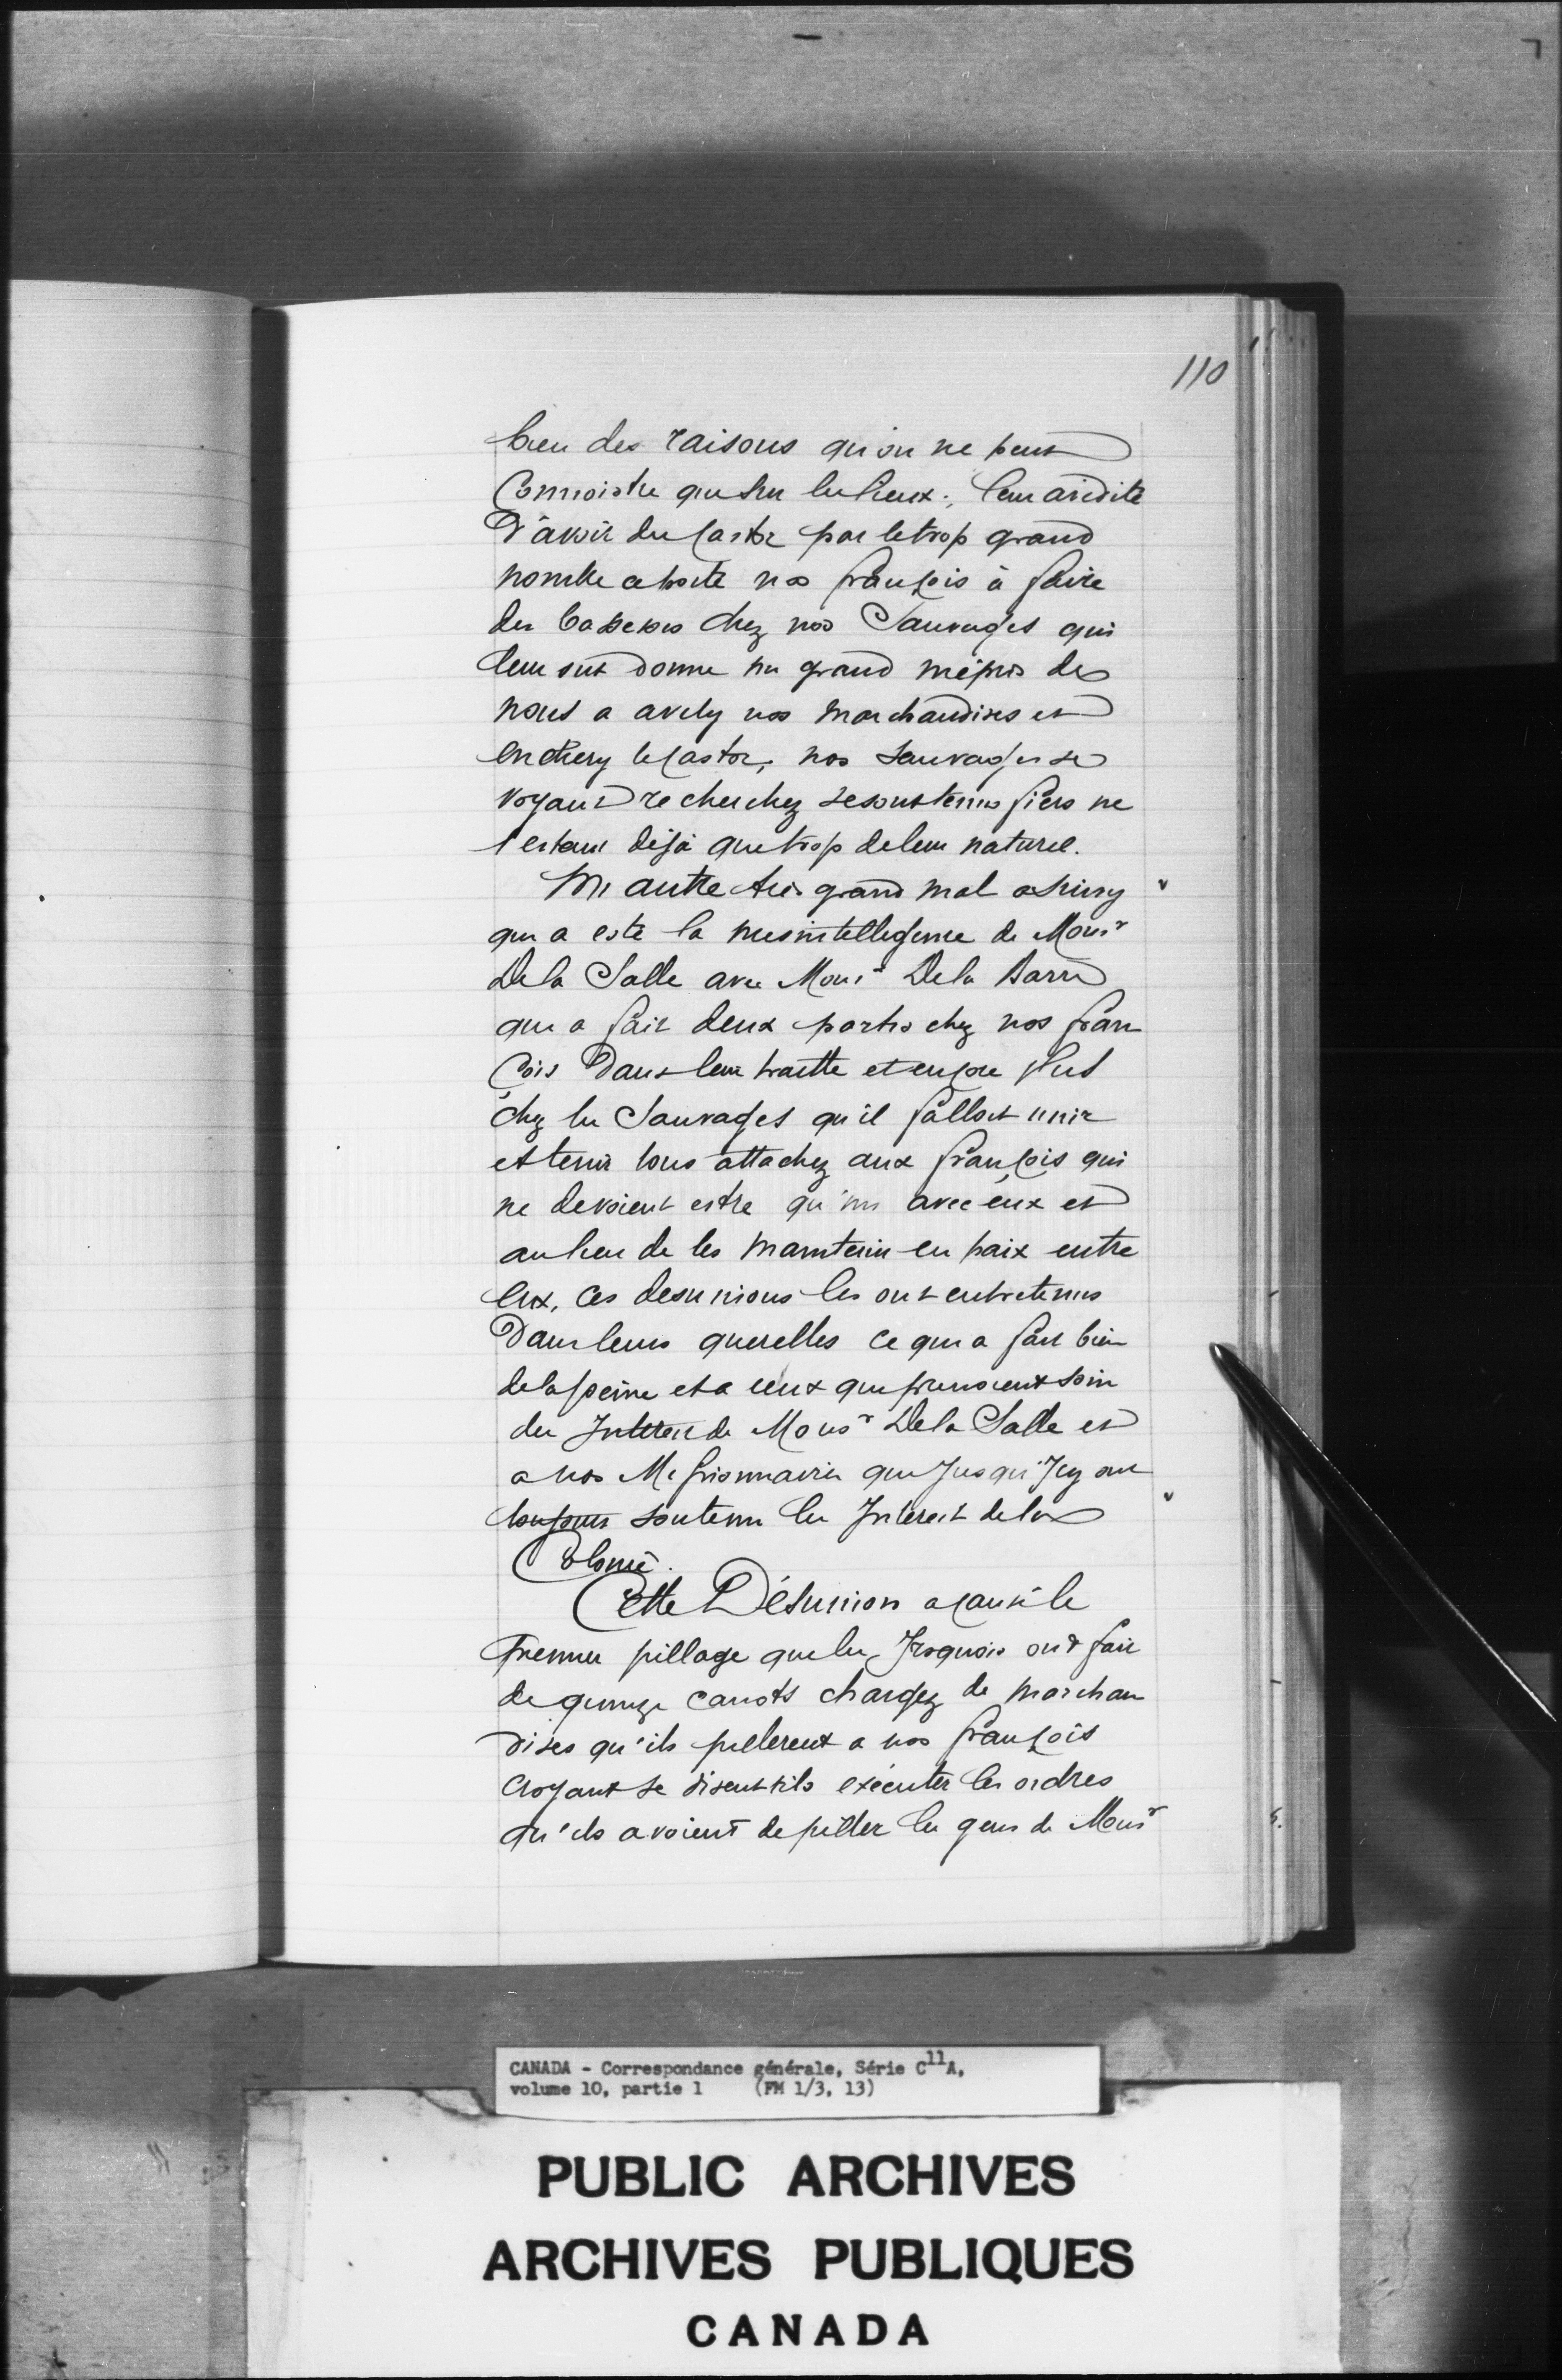 110
bien des raisons qu'on ne peut
Connoistre que sur les lieux; leur avidité
D'avoir du Castor par le trop grand
nombre a porté nos françois à faire
des bassesses chez nos Sauvages qui
leur ont donné un grand mépris de
nous a avily nos marchandises et
enchery le Castor, nos sauvages se
voyant recherchez se sont tenus fiers ne
l'estant déja que trop de leur naturel.
Un autre très grand mal a suivy
qui a esté la mesintelligence de Monsr
De la Salle avec Monsr De la Barre
qui a fait deux partis chez nos fran
çois Dans leur traitte et encore plus
chez les Sauvages qu'il falloit unir
et tenir tous attachez aux françois qui
ne devoient estre qu'un avec eux et
au lieu de les maintenir en paix entre
eux, ces desunions les ont entretenus
Dans leurs querelles ce qui a fait bien
de la peine et a ceux qui prenoient soin
des Interest de Monsr De la Salle et
a nos Missionnaires qui Jusqu'Icy ont
toujours soutenu les Interest de la
Colonie.
Cette Désunion a causé le
Premier pillage que les Iroquois ont fait
de quinze canots chargez de marchan
dises qu'ils pillerent a nos françois
croyant se disent-ils exécuter les ordres
qu'ils avoient de piller les gens de Monsr
CANADA - Correspondance générale, Série C11A,
volume 10, partie 1 (FM 1/3, 13)
PUBLIC ARCHIVES
ARCHIVES PUBLIQUES
CANADA